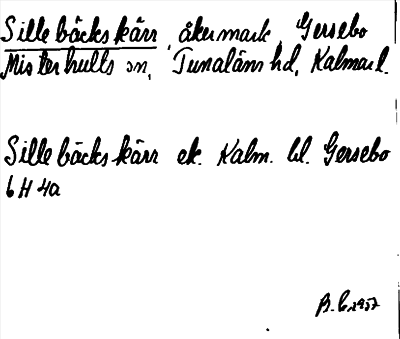 Sillebäckskärr, åkermark, Gersebo
Misterhults sn, Tunaläns hd, Kalmar l.
Sillebäckskärr ek. Kalm. bl. Gersebo
6 H 4a
1957